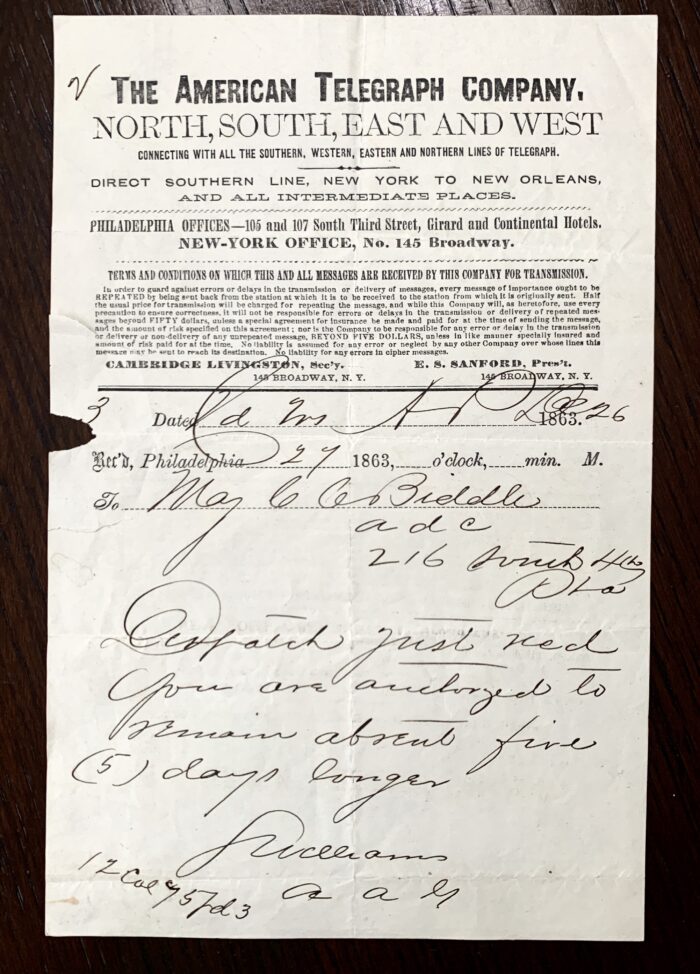 THE AMERICAN TELEGRAPH COMPANY,
NORTH, SOUTH, EAST AND WEST
CONNECTING WITH ALL THE SOUTHERN, WESTERN, EASTERN AND NORTHERN LINES OF TELEGRAPH.
DIRECT SOUTHERN LINE, NEW YORK TO NEW ORLEANS,
AND ALL INTERMEDIATE PLACES.
PHILADELPHIA OFFICES—105 and 107 South Third Street, Girard and Continental Hotels.
NEW-YORK OFFICE, No. 145 Broadway.
TERMS AND CONDITIONS ON WHICH THIS AND ALL MESSAGES ARE RECEIVED BY THIS COMPANY FOR TRANSMISSION.
In order to guard against errors or delays in the transmission or delivery of messages, every message of importance ought to be
REPEATED by being sent back from the station at which it is to be received to the station from which it is originally sent. Half
the usual price for transmission will be charged for repeating the message, and while this Company will, as heretofore, use every
precaution to ensure correctness, it will not be responsible for errors or delays in the transmission or delivery of repeated mes-
sages beyond FIFTY dollars, unless a special agreement for insurance be made and paid for at the time of sending the message,
and the amount of risk specified on this agreement; nor is the Company to be responsible for any error or delay in the transmission
or delivery or non-delivery of any unrepeated message, BEYOND FIVE DOLLARS, unless in like manner specially insured and
amount of risk paid for at the time. No liability is assumed for any error or neglect by any other Company over whose lines this
message may be sent to reach its destination. No liability for any errors in cipher messages.
CAMBRIDGE LIVINGSTON, Sec'y. E. S. SANFORD, Pres't.
145 BROADWAY, N. Y. 145 BROADWAY, N. Y.
3 Dated A P Dec 1863. 26
Rec'd, Philadelphia 27 1863, o'clock, min. M.
To Maj C C Biddle
a d c
216 South 4th
Pha
Despatch just recd
You are authorzed to
remain absent five
(5) days longer
S Williams
a a G
12 Col 75 3